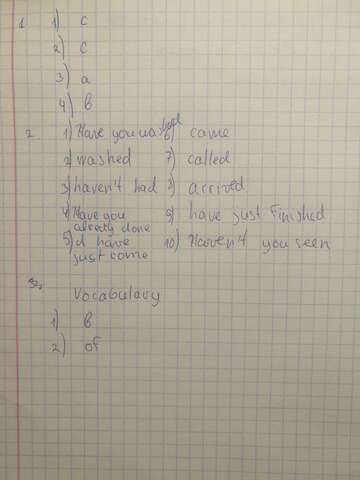 1 1) c
2) c
3) a
4) b
2. 1) Have you washed 6) came
2) washed 7) called
3) haven't had 8) arrived
4) Have you already done 9) have just finished
5) I have just come 10) Haven't you seen
3.
Vocabulary
1) b
2) of